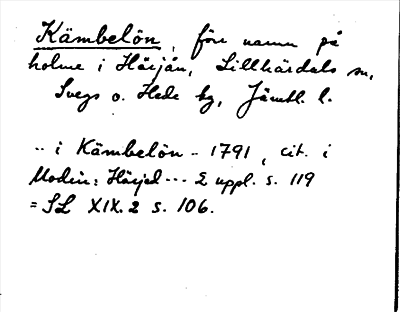 Kämbelön, förr namn på
holme i Härjån, Lillhärdals sn,
Svegs o. Hede hg, Jämtl. l.
.. i Kämbelön - 1791, cit. i
Modin: Härjed --- 2 uppl. s. 119
= SL XIX. 2 s. 106.